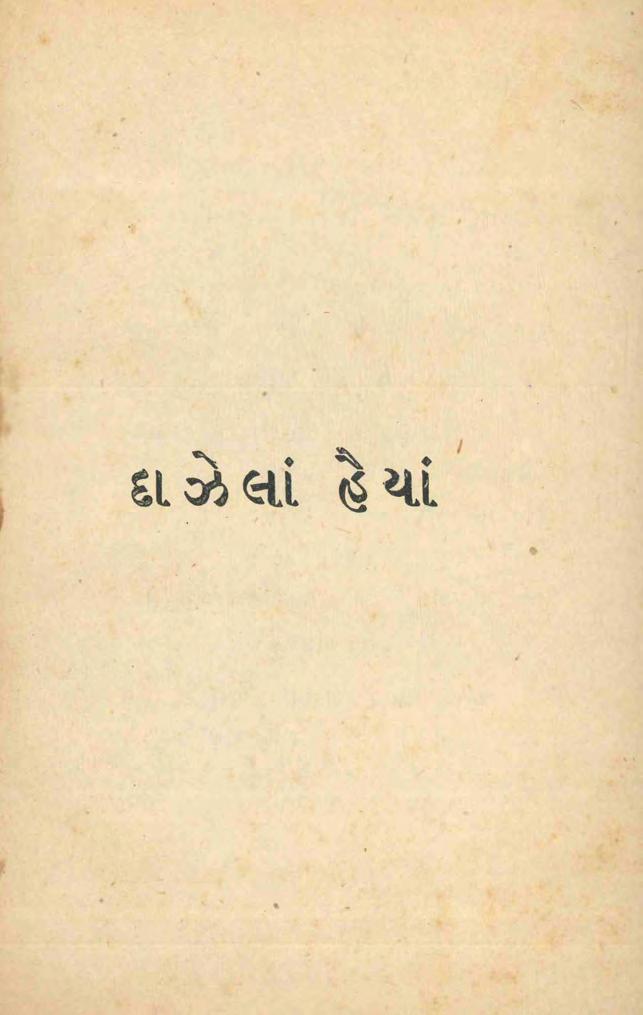 દાઝેલાં હૈયાં